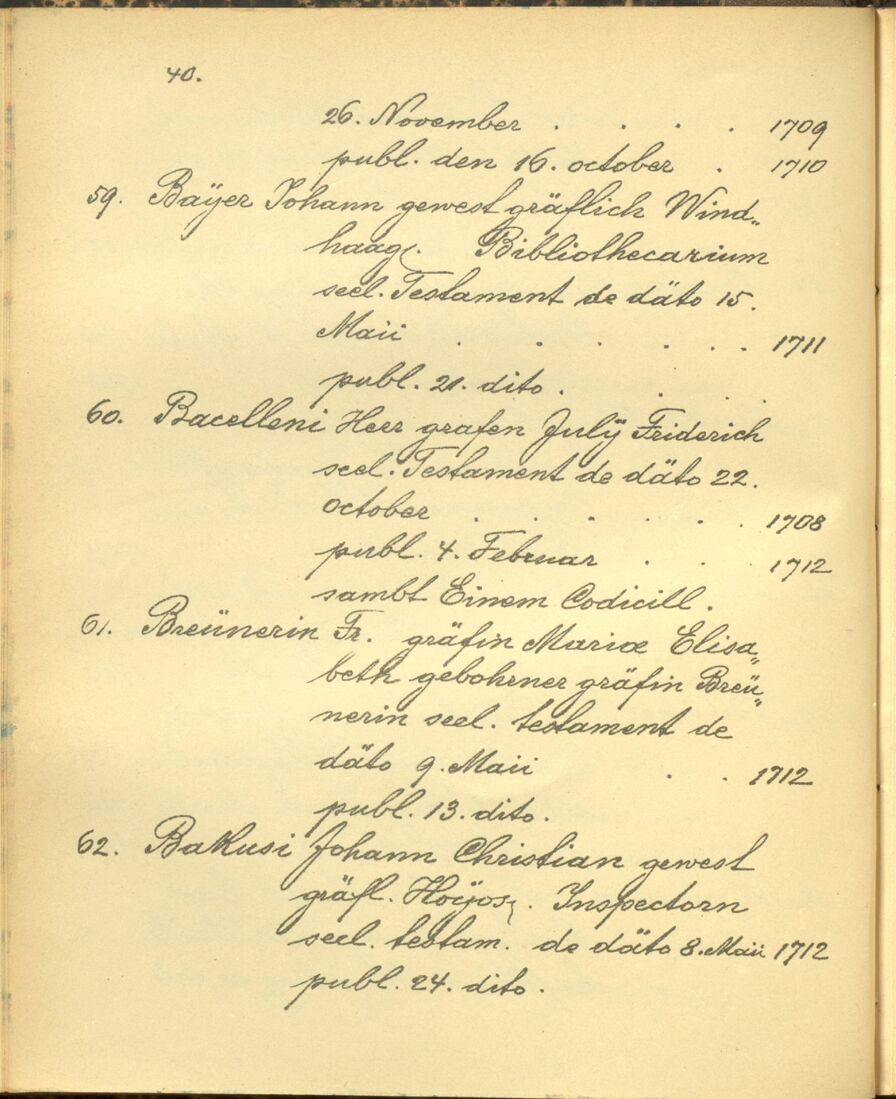 40.
26. November . . . . 1709
publ. den 16. october . 1710
59. Baÿer Johann gewest gräflich Wind„
haag. Bibliothecarium
seel. Testament de däto 15.
Maii . . . . . . 1711
publ. 21. dito . . .
60. Bacelleni Herr grafen Julÿ Friderich
seel. Testament de däto 22.
october . . . . . . 1708
publ. 4. Februar . . 1712
sambt Einem Codicill.
61. Breünerin Fr. gräfin Mariæ Elisa„
beth gebohrner gräfin Breü„
nerin seel. testament de
däto 9. Maii . . 1712
publ. 13. dito.
62. Bakusi Johann Christian gewest
gräfl. Hoÿos. Inspectorn
seel. testam. de däto 8. Maii 1712
publ. 24. dito.